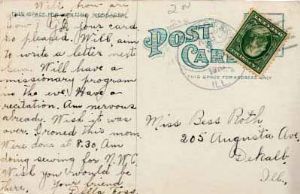 Well, how are
THIS SPACE FOR WRITING MESSAGES
Your card
so pleased. Will aim
to write a letter next
Will have a
missionary program
in the eve. Have a
recitation. Am nervous
already. Wish it was
over. Ironed this morn
Were done at 8.30. Am
doing sewing for N.W.C.
Wish you would be
here. Your friend
POST
CARD
THIS SPACE FOR ADDRESS ONLY
ILL.
Miss Bess Roth
205 Augusta Ave
Dekalb
Ill.